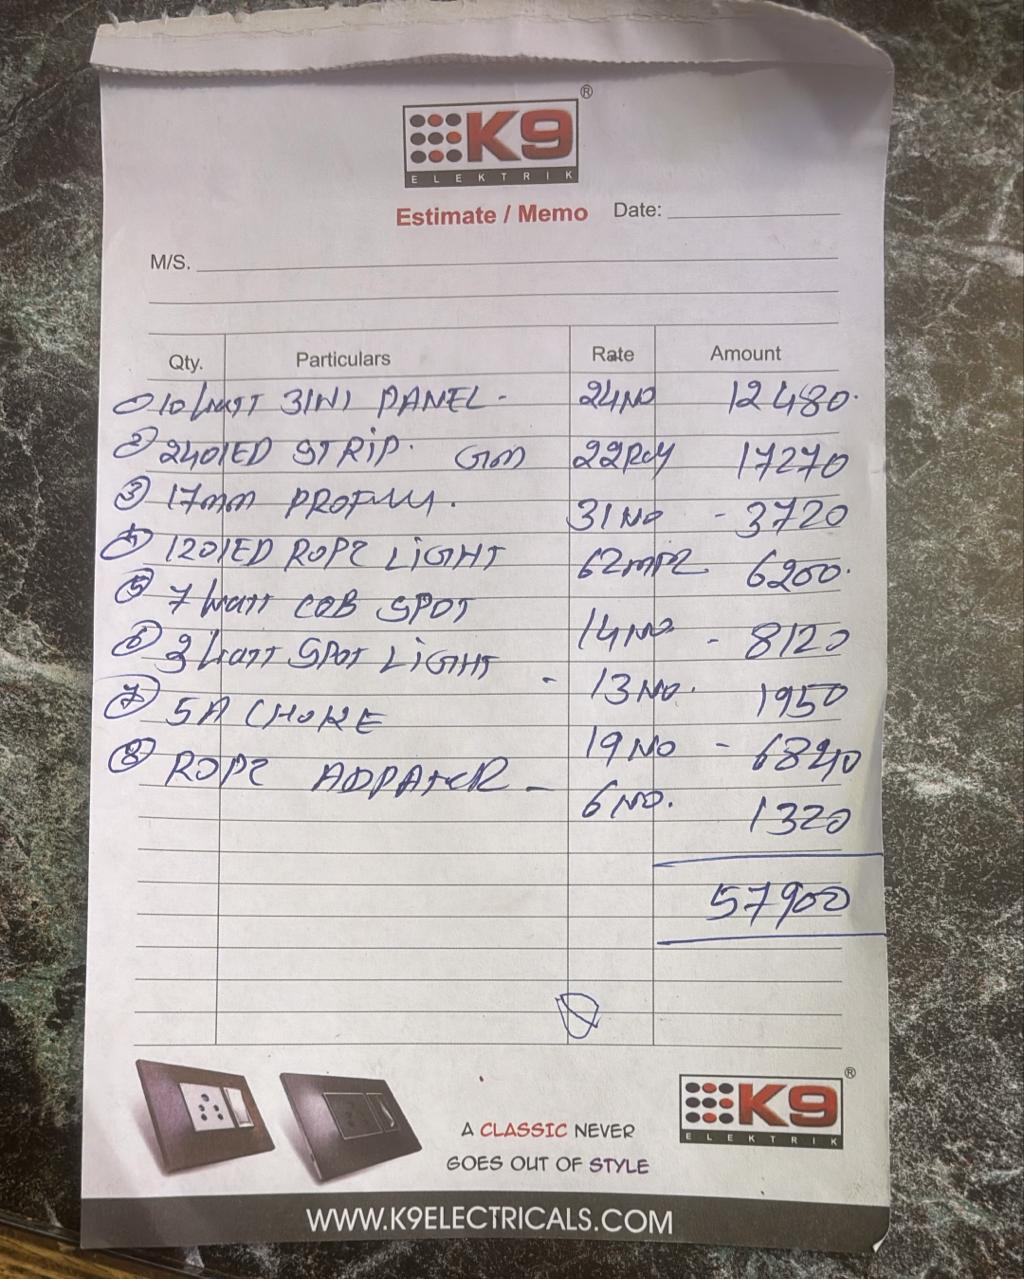 K9
ELEKTRIK
®
Estimate / Memo Date:
M/S.
Qty. Particulars Rate Amount
① 10 Watt 3IN1 PANEL - 24 NO 12480.
② 240 LED STRIP. 22 12 17270
③ 17mm 31 NO - 3720
④ 120 LED ROPE LIGHT 62 mtr 6200.
⑤ 7 Watt COB SPOT 14 NO - 8120
⑥ 3 Watt SPOT LIGHT - 13 NO. 1950
⑦ 5A CHOKE 19 NO - 6840
⑧ ROPE ADPATER - 6 NO. 1320
57900
A CLASSIC NEVER
GOES OUT OF STYLE
K9
ELEKTRIK
®
WWW.K9ELECTRICALS.COM